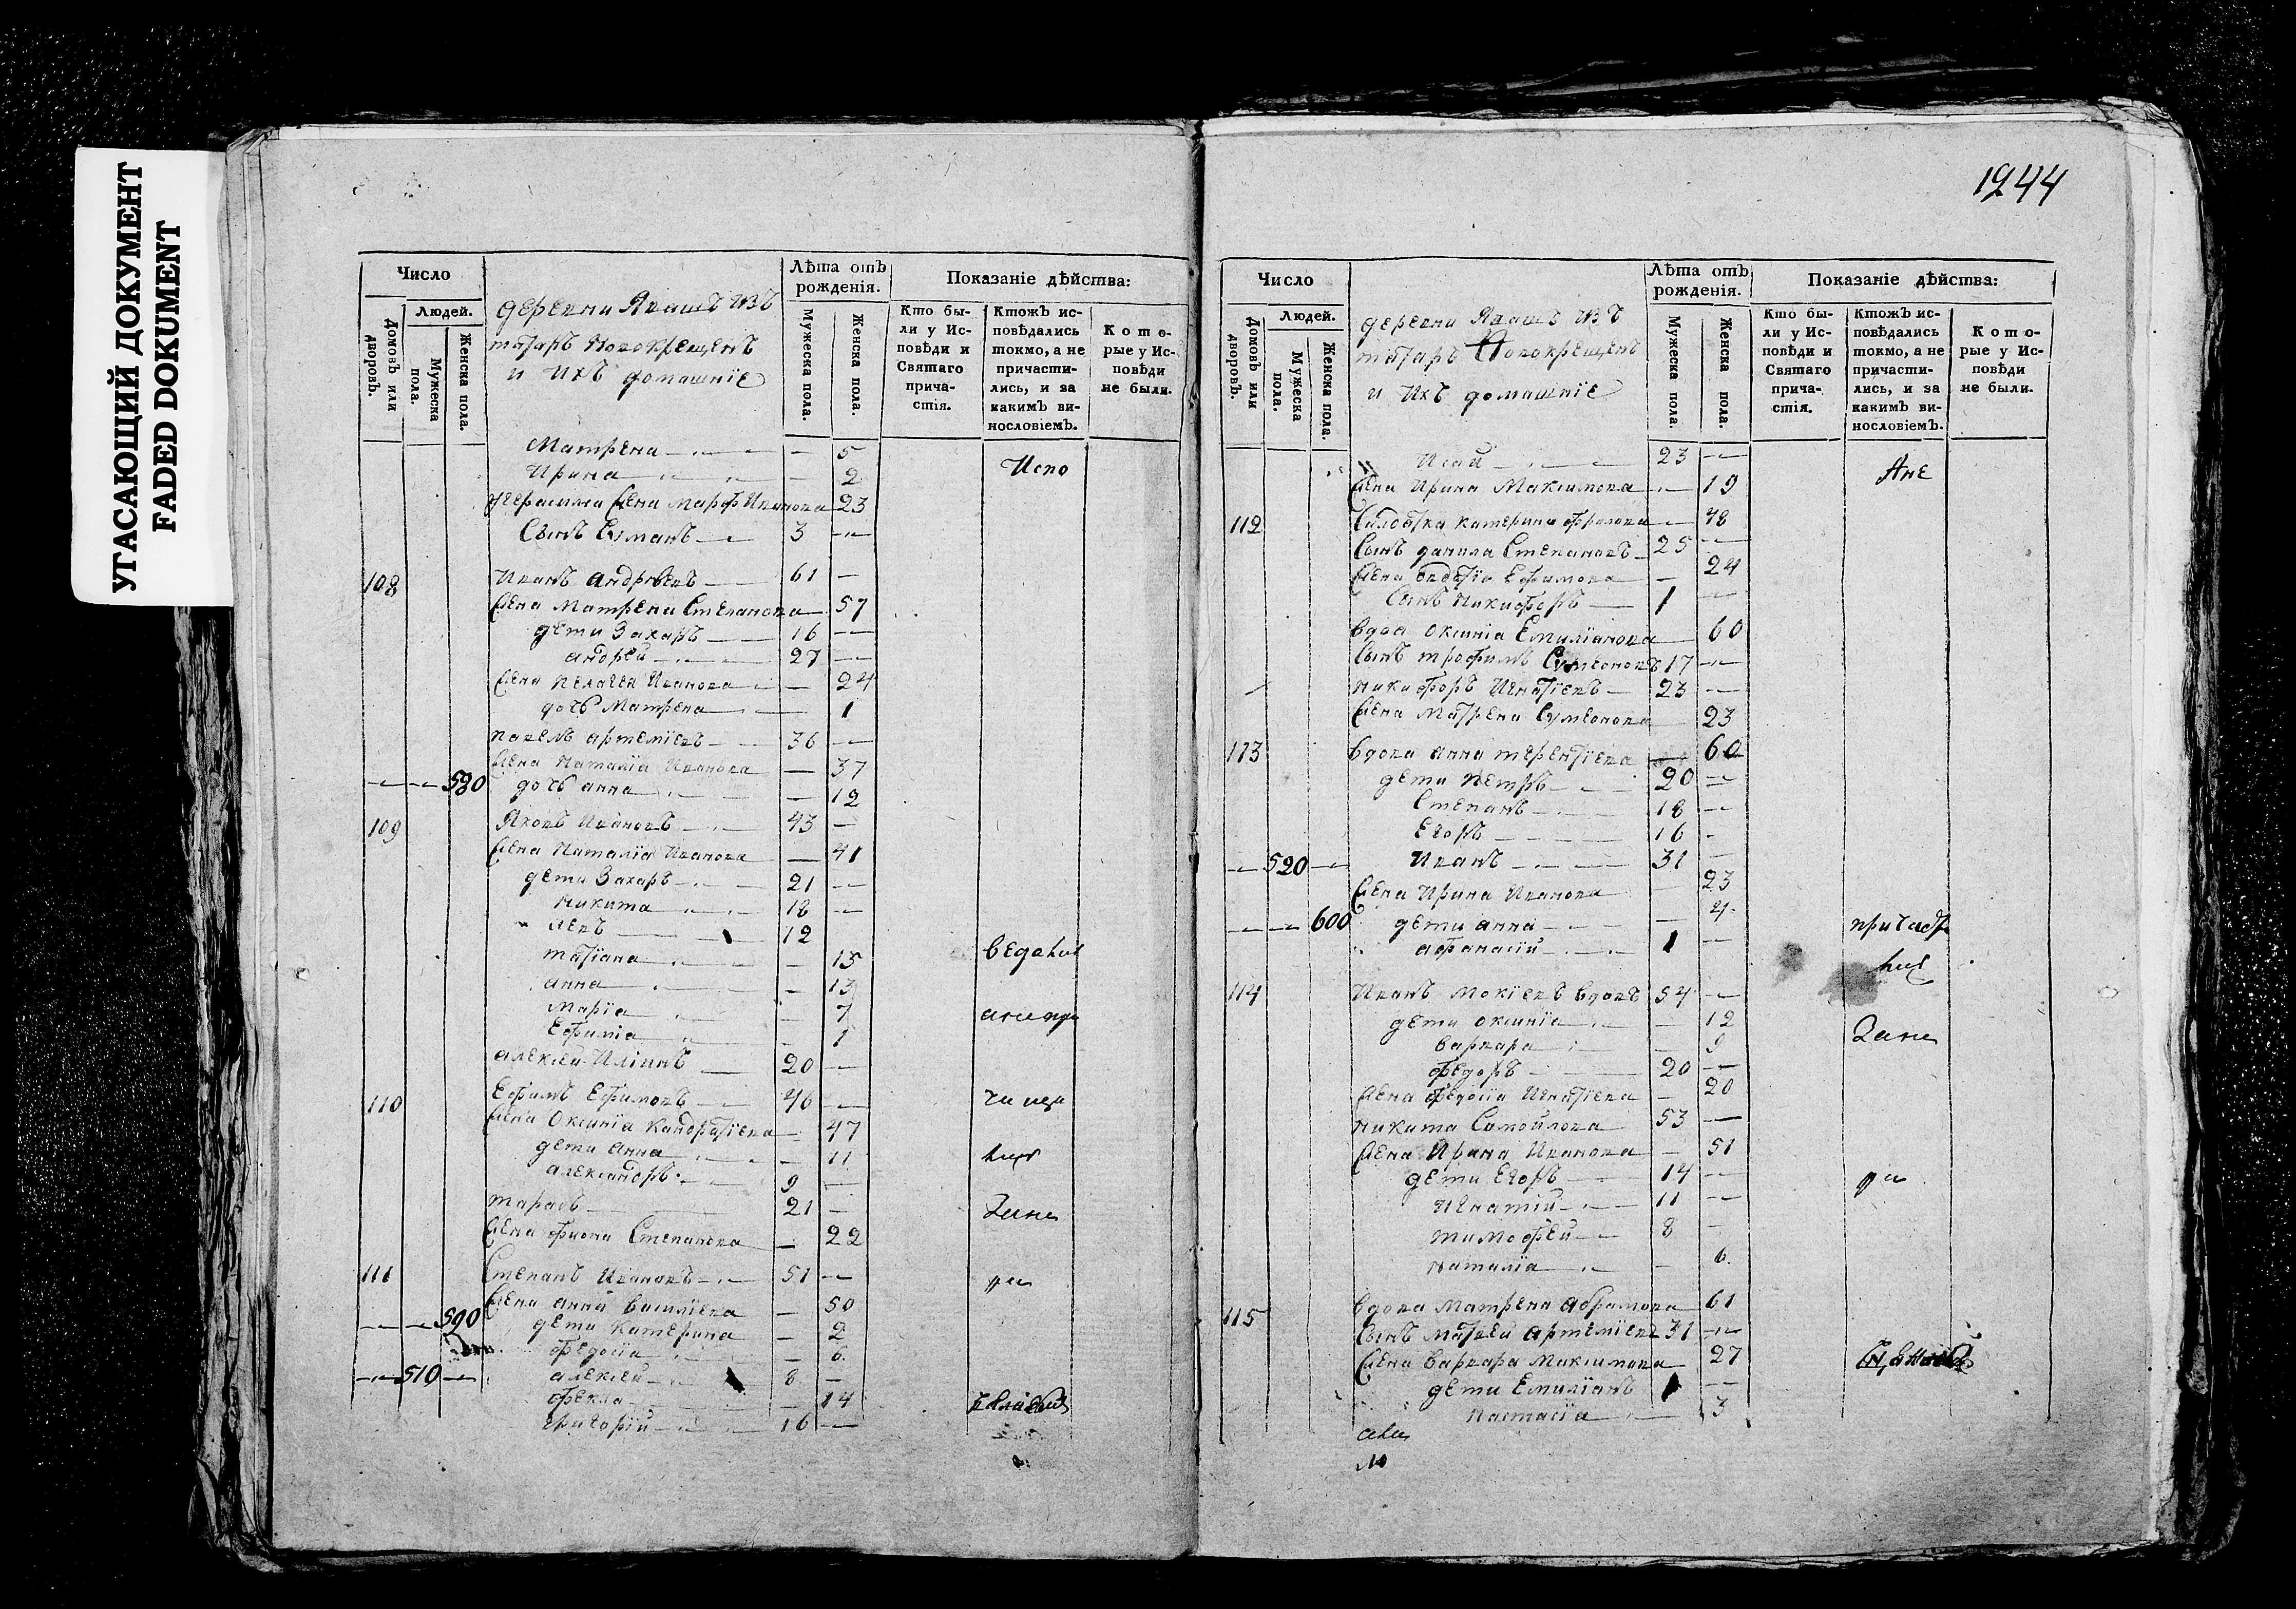 УГАСАЮЩИЙ ДОКУМЕНТ
FADED DOKUMENT
Число
Людей.
Домовъ или дворовъ.
Мужеска пола.
Женска пола.
деревни Якашъ изъ
татаръ Новокрещенъ
и ихъ домашніе
Лѣта отъ рожденія.
Мужеска пола.
Женска пола.
Показаніе дѣйства:
Кто были у Исповѣди и Святаго причастія.
Ктожъ исповѣдались токмо, а не причастились, и за какимъ винословіемъ.
Которые у Исповѣди не были.
Матрена — 5
Ирина — 2
Испо
Герасима жена Марфа Иванова 23
Сынъ Симанъ 3 —
108 Иванъ андрѣевъ 61 —
жена Матрена Степанова 57
дети Захаръ 16 —
андрей 27 —
жена пелагея Иванова — 24
дочь Матрена — 1
павелъ артемiевъ 36 —
жена Наталiа Иванова — 37
580 дочь анна — 12
109 Яковъ Ивановъ 43 —
жена Наталiа Иванова — 41
дети Захаръ 21 —
никита 18 —
левъ 12
татiана — 15
анна — 13
Марiа — 7
Ефимiа — 1
алексеи Илiинъ 20 —
110 Ефимъ Ефимовъ 46 —
жена Оксинiа Кандратiева 47
дети анна — 11
александръ 9 —
тарасъ 21 —
Зане
жена фиона Степанова — 22
111 Степанъ Ивановъ 51 —
жена анна василiева — 50
590 дети катерина — 2
федосiа — 6.
510 алексеи 8 —
фекла — 14
григорiй 16 —
1244
Число
Людей.
Домовъ или дворовъ.
Мужеска пола.
Женска пола.
деревни Якашъ изъ
татаръ Новокрещенъ
и ихъ домашніе
Лѣта отъ рожденія.
Мужеска пола.
Женска пола.
Показаніе дѣйства:
Кто были у Исповѣди и Святаго причастія.
Ктожъ исповѣдались токмо, а не причастились, и за какимъ винословіемъ.
Которые у Исповѣди не были.
Исай 23 —
Ане
жена Ирина Максимова — 19
112 Салдатка катерина фролова — 48
Сынъ данила Степановъ 25 —
жена евдотiа Ефимова — 24
Сынъ Никифоръ 1 —
вдова оксинiа Емилiанова 60
Сынъ трофимъ Сумеоновъ 17 —
никифоръ Игнатiевъ 23 —
жена Матрена Сумеонова 23
113 вдова анна терентiева 60
дети петръ 20 —
Степанъ 18 —
Егоръ 16 -
520 Иванъ 31 —
жена Ирина Иванова — 23
600 дети анна — 4.
афанасiй 1 —
114 Иванъ Мокiевъ вдовъ 54 —
дети оксинiа — 12
Зане
варвара — 9
федоръ 20 —
жена федосiа Игнатiева — 20
никита Самойлова 53 —
жена Ирина Иванова — 51
дети Егоръ 14 —
игнатiй 11 —
тимофей 8 —
наталiа — 6.
115 вдова Матрена абрамова 61
Сынъ матвей артемiевъ 31 —
жена варвара Максимова 27
дети Емилiанъ 1 —
настасiа 3